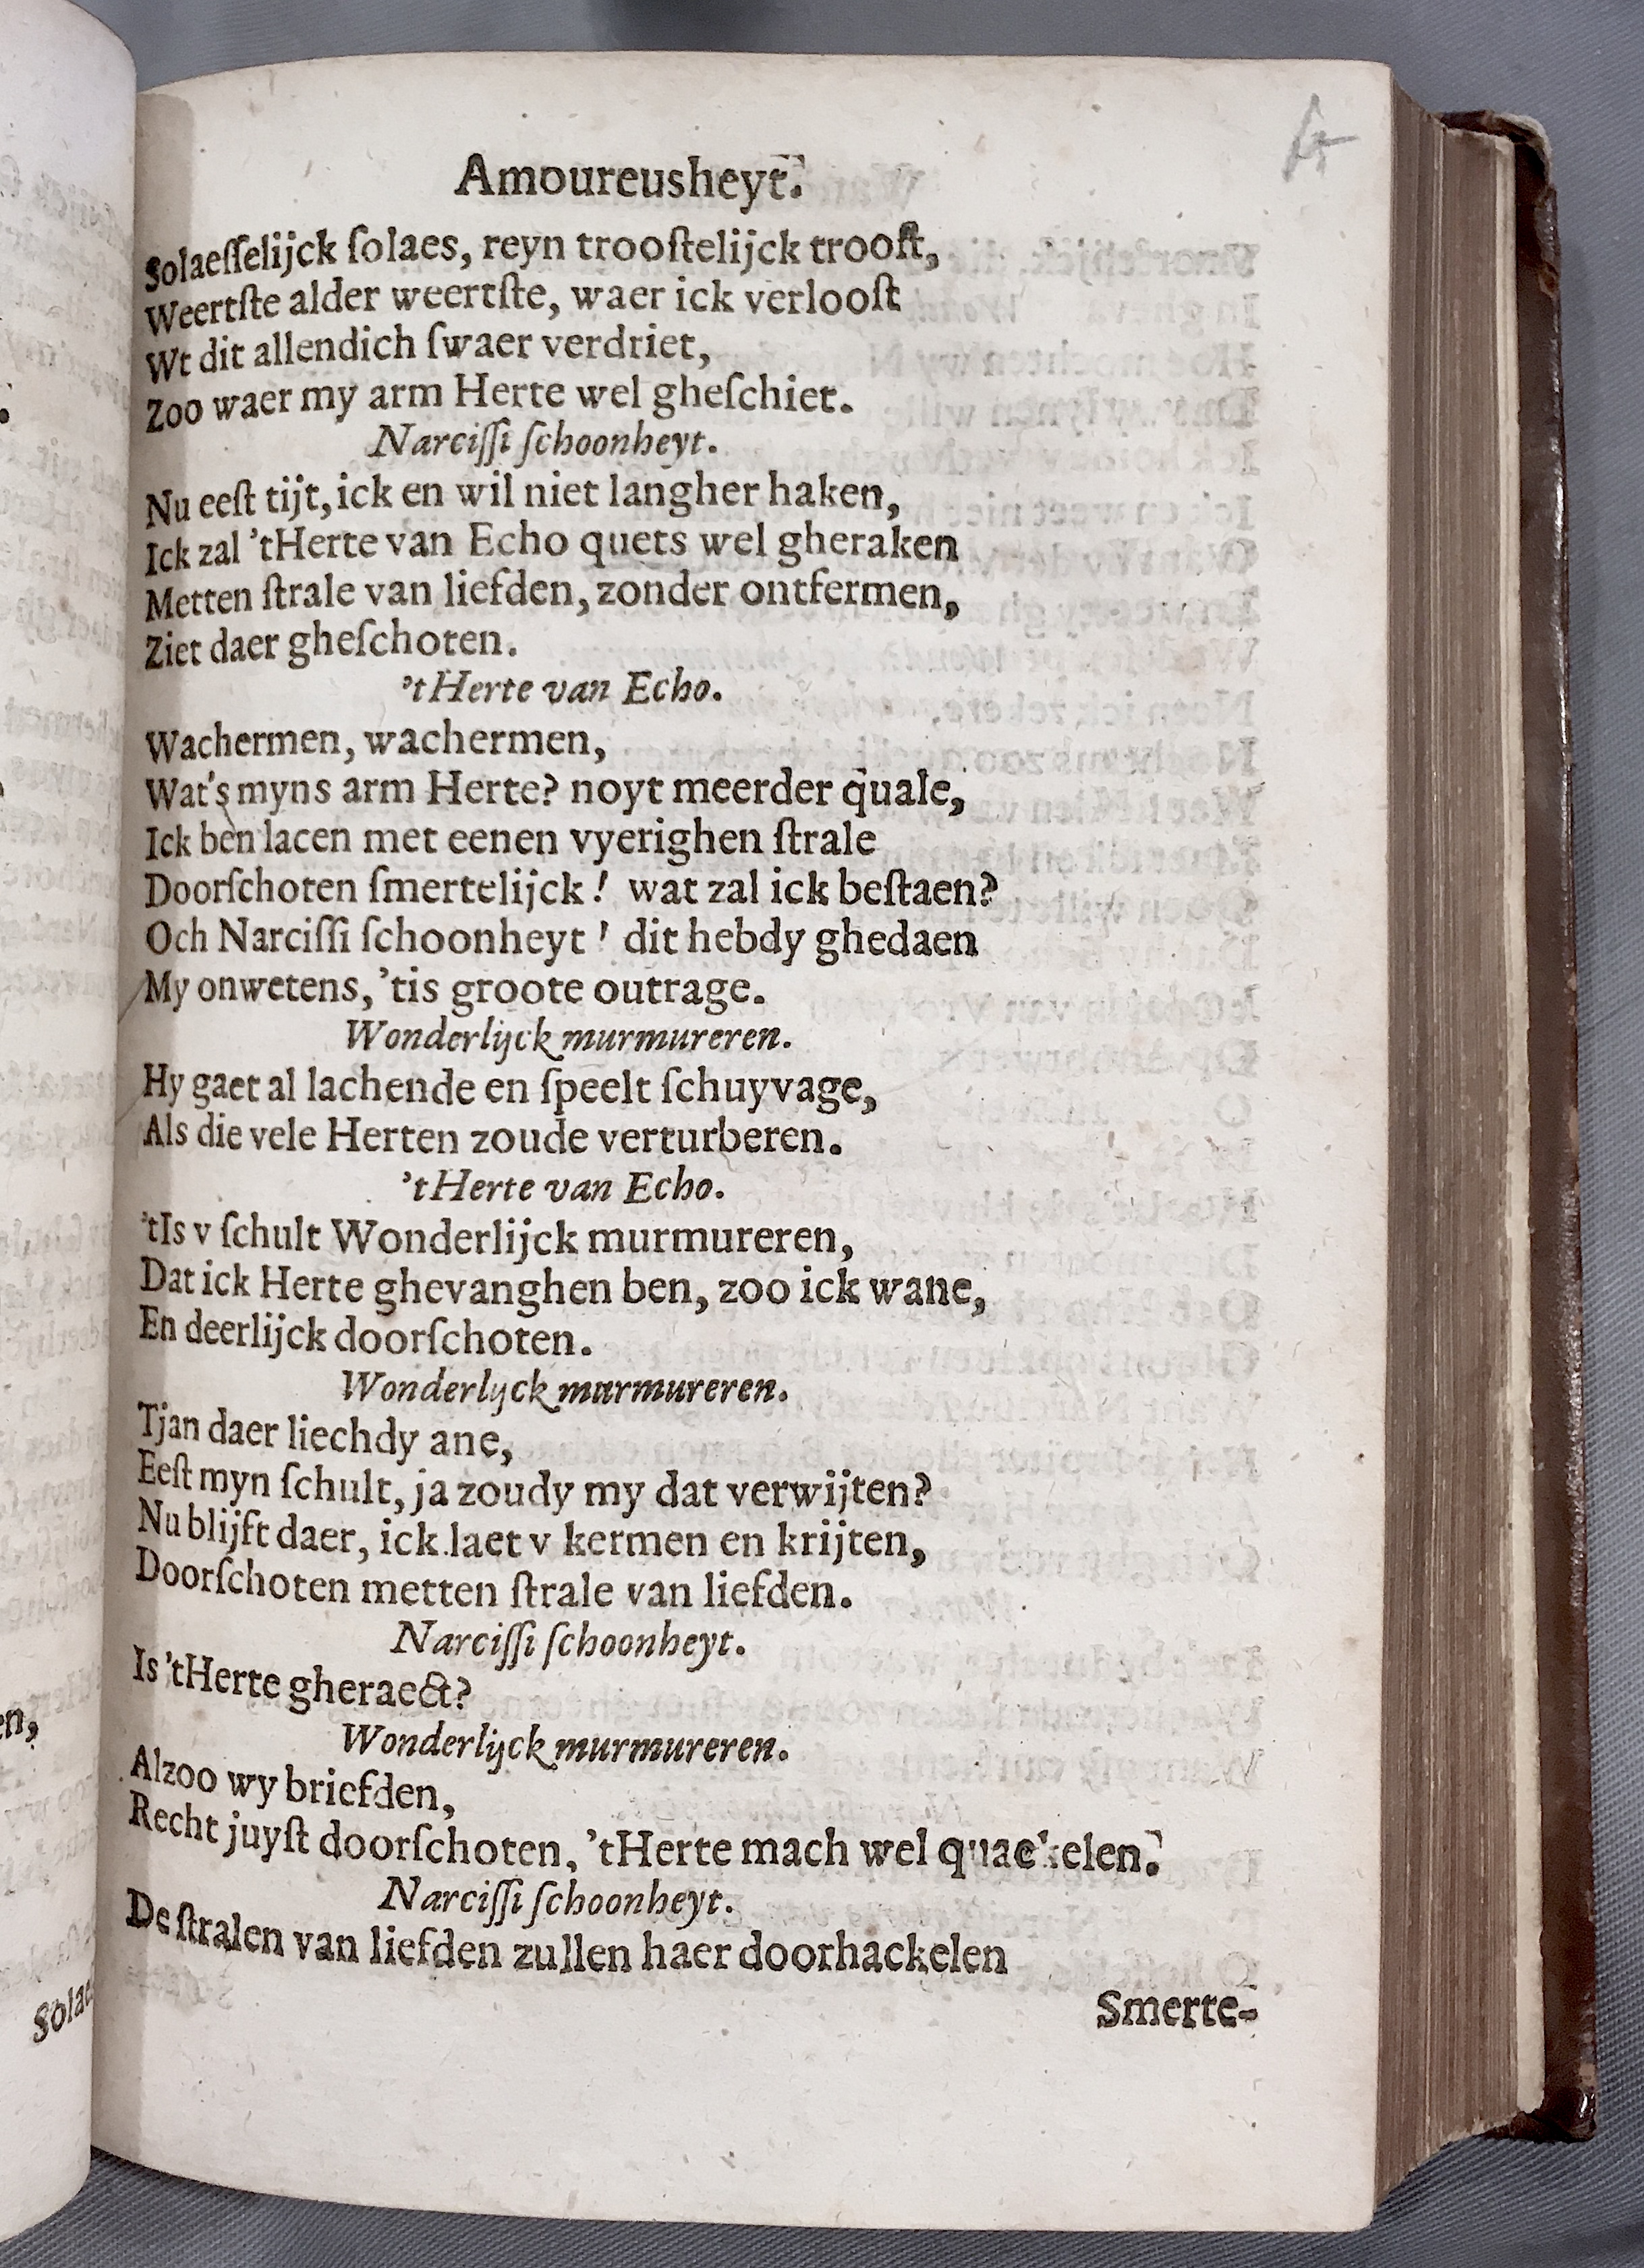 Amoureusheyt.
Solaeſſelijck ſolaes, reyn trooſtelijck trooſt,
Weertſte alder weertſte, waer ick verlooſt
Wt dit allendich ſwaer verdriet,
Zoo waer my arm Herte wel gheſchiet.
Narciſſi ſchoonheyt.
Nu eeſt tijt, ick en wil niet langher haken,
Ick zal 'tHerte van Echo quets wel gheraken
Metten ſtrale van liefden, zonder ontfermen,
Ziet daer gheſchoten.
'tHerte van Echo.
Wachermen, wachermen,
Wat's myns arm Herte? noyt meerder quale,
Ick ben lacen met eenen vyerighen ſtrale
Doorſchoten ſmertelijck! wat zal ick beſtaen?
Och Narciſſi ſchoonheyt! dit hebdy ghedaen
My onwetens, 'tis groote outrage.
Wonderlijck murmureren.
Hy gaet al lachende en ſpeelt ſchuyvage,
Als die vele Herten zoude verturberen.
'tHerte van Echo.
'tIs v ſchult Wonderlijck murmureren,
Dat ick Herte ghevanghen ben, zoo ick wane,
En deerlijck doorſchoten.
Wonderlijck murmureren.
Tjan daer liechdy ane,
Eeſt myn ſchult, ja zoudy my dat verwijten?
Nu blijft daer, ick laet v kermen en krijten,
Doorſchoten metten ſtrale van liefden.
Narciſſi ſchoonheyt.
Is 'tHerte gheraect?
Wonderlijck murmureren.
Alzoo wy briefden,
Recht juyſt doorſchoten, 'tHerte mach wel quackelen.
Narciſſi ſchoonheyt.
De ſtralen van liefden zullen haer doorhackelen
Smerte-